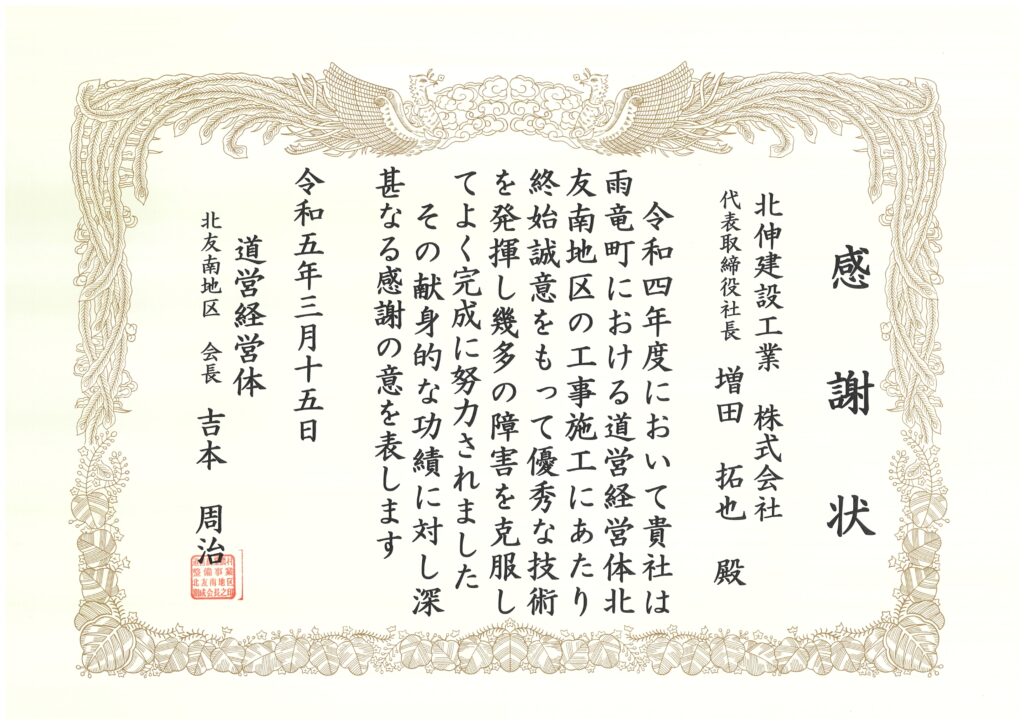 感謝状
北伸建設工業 株式会社
代表取締役社長 増田 拓也 殿
令和四年度において貴社は
雨竜町における道営経営体北
友南地区の工事施工にあたり
終始誠意をもって優秀な技術
を発揮し幾多の障害を克服し
てよく完成に努力されました
その献身的な功績に対し深
甚なる感謝の意を表します
令和五年三月十五日
道営経営体
北友南地区 会長 吉本 周治
整備事業
北友南地区
期成会長之印